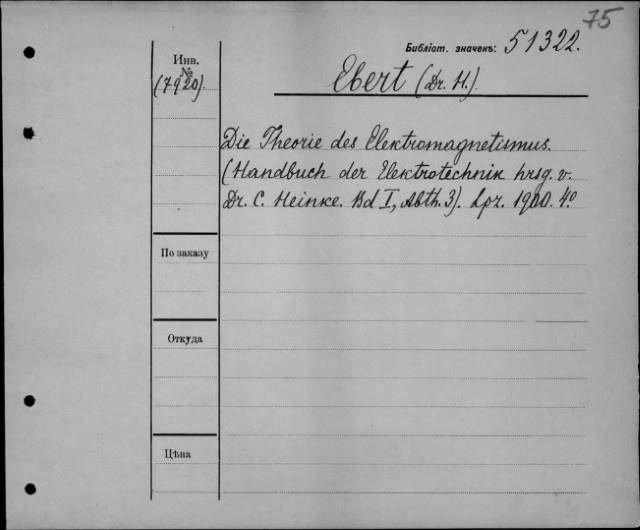 75
Библіот. значекъ: 51322.
Инв.
№
(7920).
Ebert (Dr. H.).
Die Theorie des Elektromagnetismus.
(Handbuch der Elektrotechnik hrsg. v.
Dr. C. Heinke. Bd I, Abth. 3). Lpz. 1900. 4°
По заказу
Откуда
Цѣна